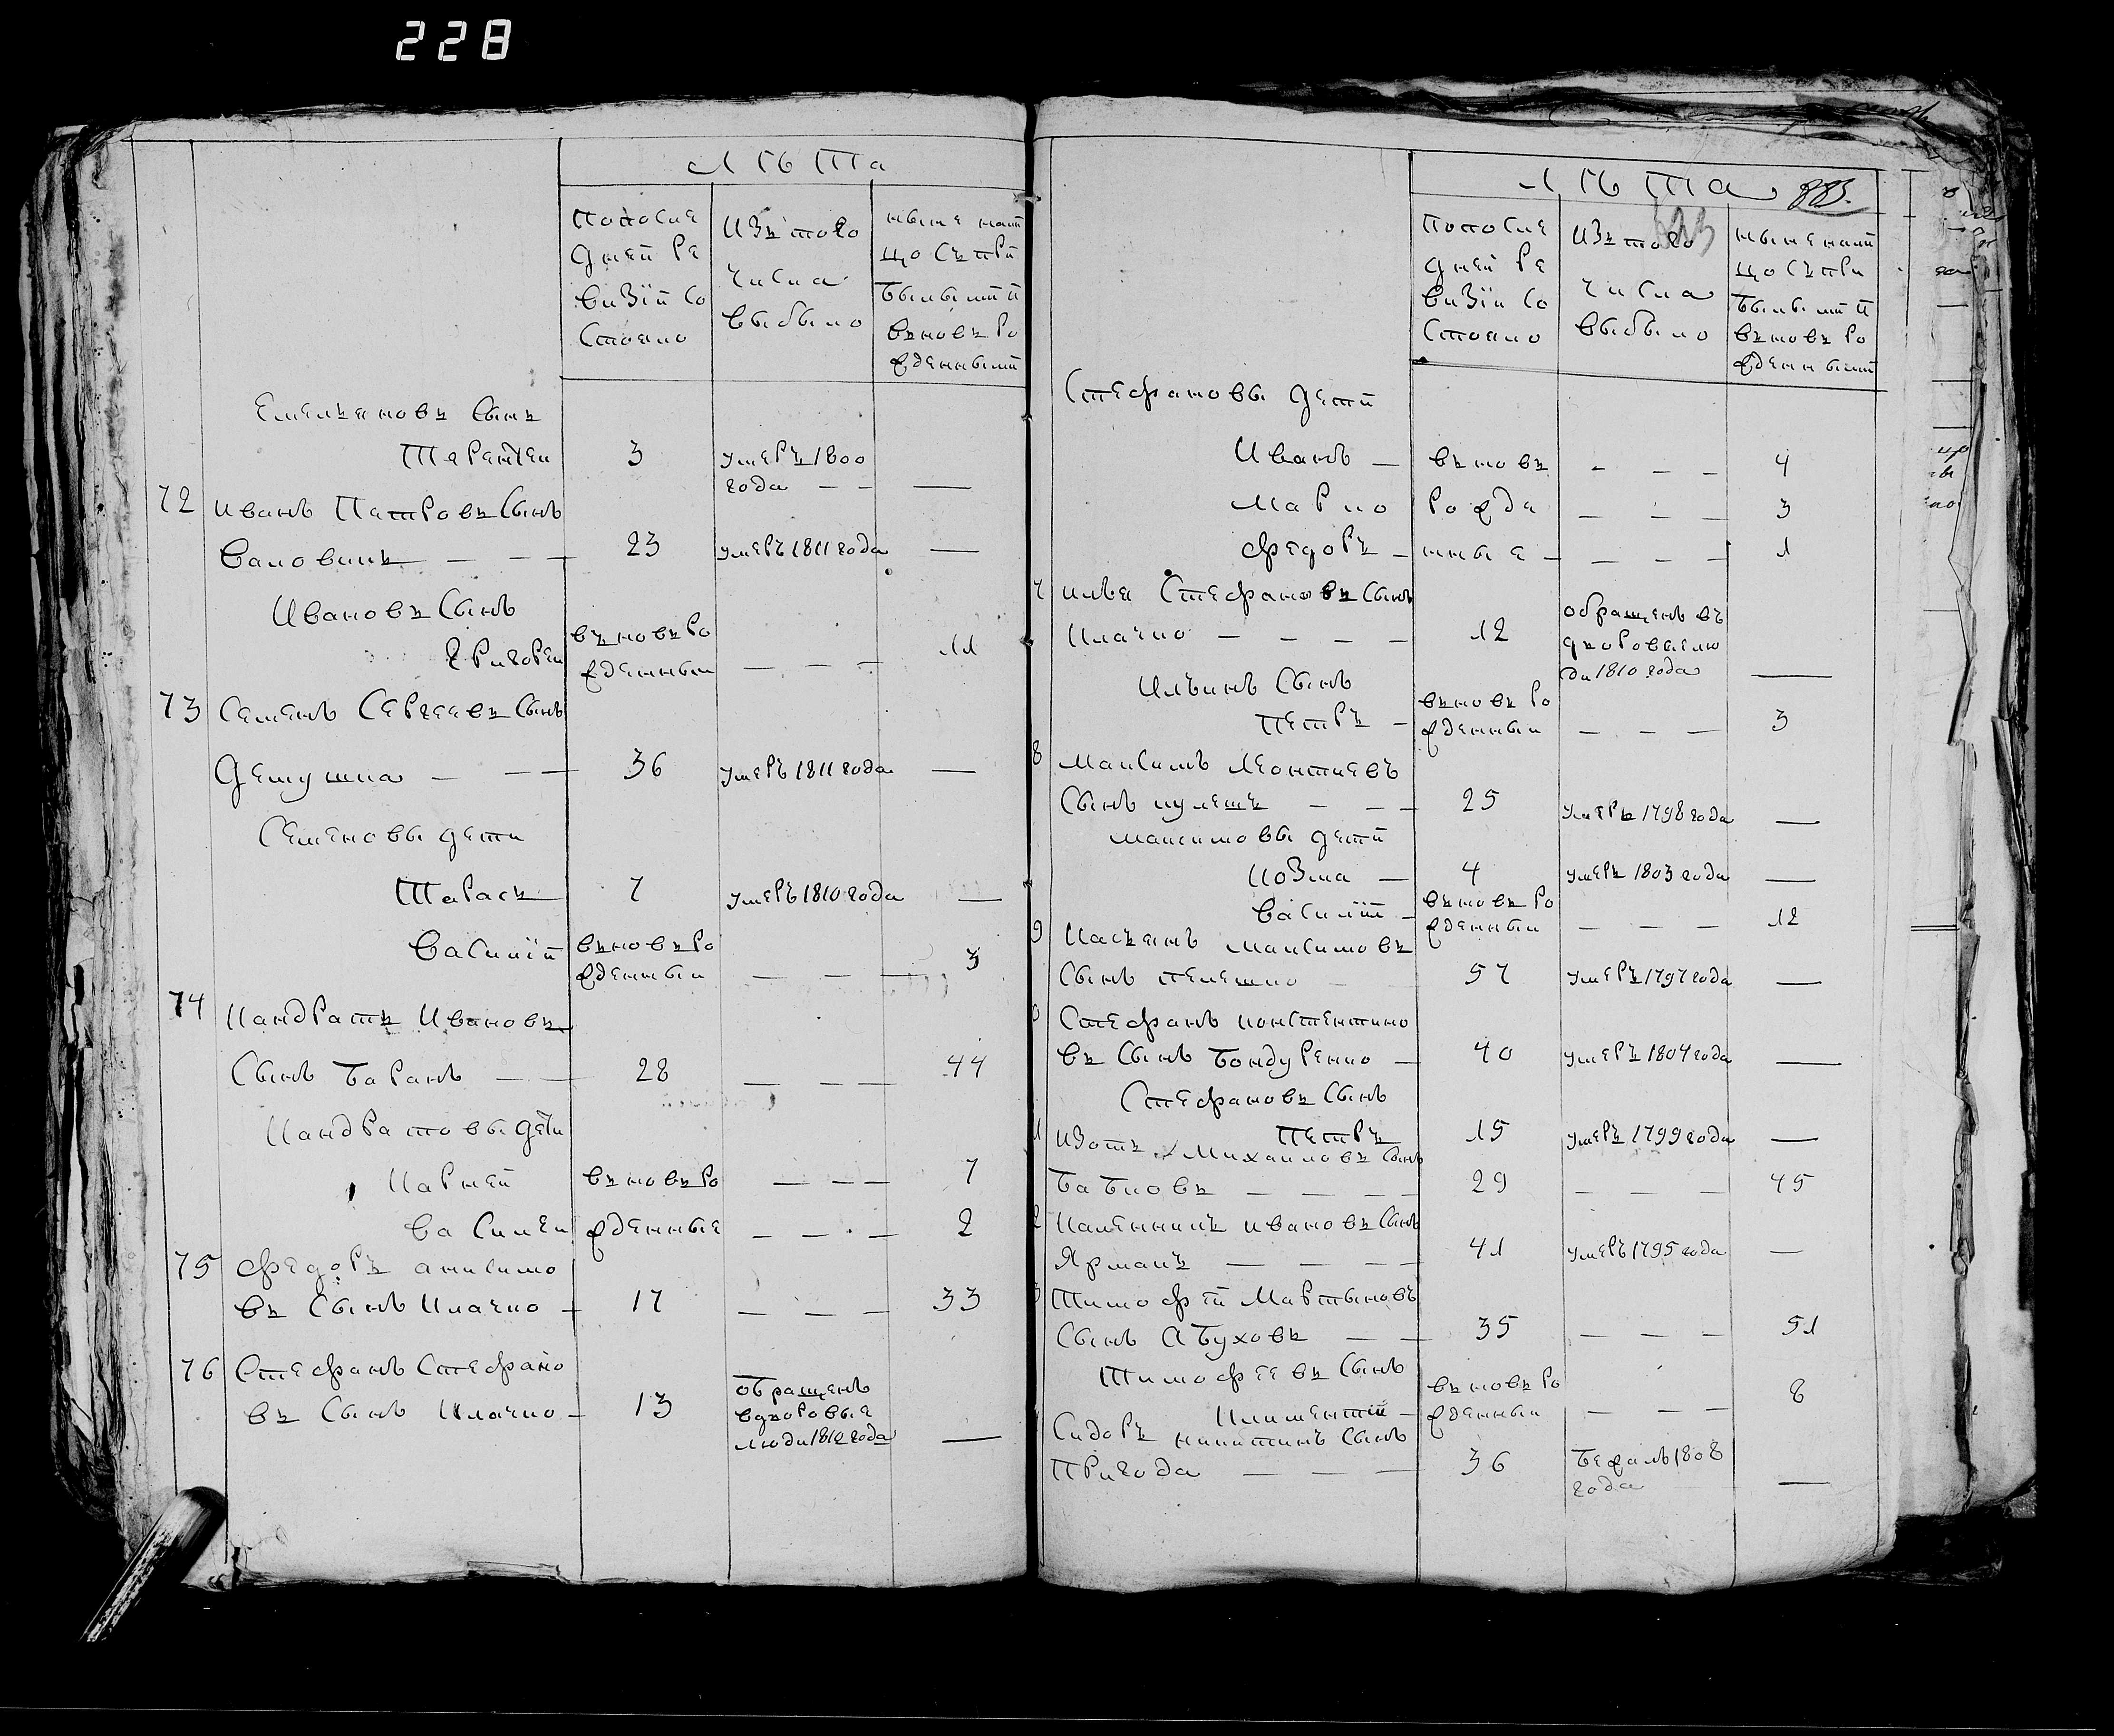 228
ЛѣТа
Попосле
дней Ре
визіи Со
Стояло
Изъ того
числа
выбыло
ныне нали
цо Съ при
былыми и
вьновь Ро
жденными
Емельяновъ Сынъ
Терентеи
3
умеръ 1800
года — —
—
72
Иванъ Петровъ Сынъ
Валовикъ — — —
23
умеръ 1811 года
—
Ивановъ Сынъ
Григореи
вьновь Ро
жденныи
— — —
11
73
Семенъ Сергеевъ Сынъ
Детушка — — —
36
умеръ 1811 года
—
Семеновы дети
Тарасъ
7
умеръ 1810 года
—
Василій
вьновь Ро
жденныи
— — —
3
74
Кандратъ Ивановъ
Сынъ Баранъ — —
28
— — —
44
Кандратовы дети
Карней
вьновь Ро
— — —
7
Василеи
жденные
— — —
2
75
Федоръ анисимо
въ Сынъ Клачко —
17
— — —
33
76
Стефанъ Стефано
въ Сынъ Клачко —
13
обращенъ
вдворовые
люди 1810 года
—
ЛѣТа
883.
Попосле
дней Ре
визіи Со
Стояло
Изъ того
числа
выбыло
ныне нали
цо Съ при
былыми и
вьновь Ро
жденными
Стефановы дети
Иванъ —
вьновь
— — —
4
Марко
Рожде
— — —
3
Федоръ —
нные —
— — —
1
7
илья Стефановъ Сынъ
Клачко — — — —
12
обращенъ въ
дворовыелю
ди 1810 года
—
Ильинъ Сынъ
Петръ —
вьновь Ро
жденныи
— — —
3
8
Максимъ Леонтиевъ
Сынъ кулешъ — — —
25
умеръ 1798 года
—
Максимовы дети
Козма —
4
умеръ 1803 года
—
Василій —
вьновь Ро
жденныи
— — —
12
9
Касьянъ Максимовъ
Сынъ пелешко
57
умеръ 1797 года
—
0
Стефанъ констентино
въ Сынъ Бондуренко —
40
умеръ 1804 года
—
Стефановъ Сынъ
Петръ
15
умеръ 1799 года
—
1
Изотъ Михаиловъ Сынъ
Бабковъ — — — —
29
— — —
45
2
Каленникъ ивановъ Сынъ
Ярмакъ — — — —
41
умеръ 1795 года
—
3
Тимофей Мартыновъ
Сынъ Абуховъ — —
35
— — —
51
Тимофеевъ Сынъ
Климентій —
вьновь Ро
жденныи
— — —
8
Сидоръ никитинъ Сынъ
Пригода — — —
36
Бежалъ 1808
года
—